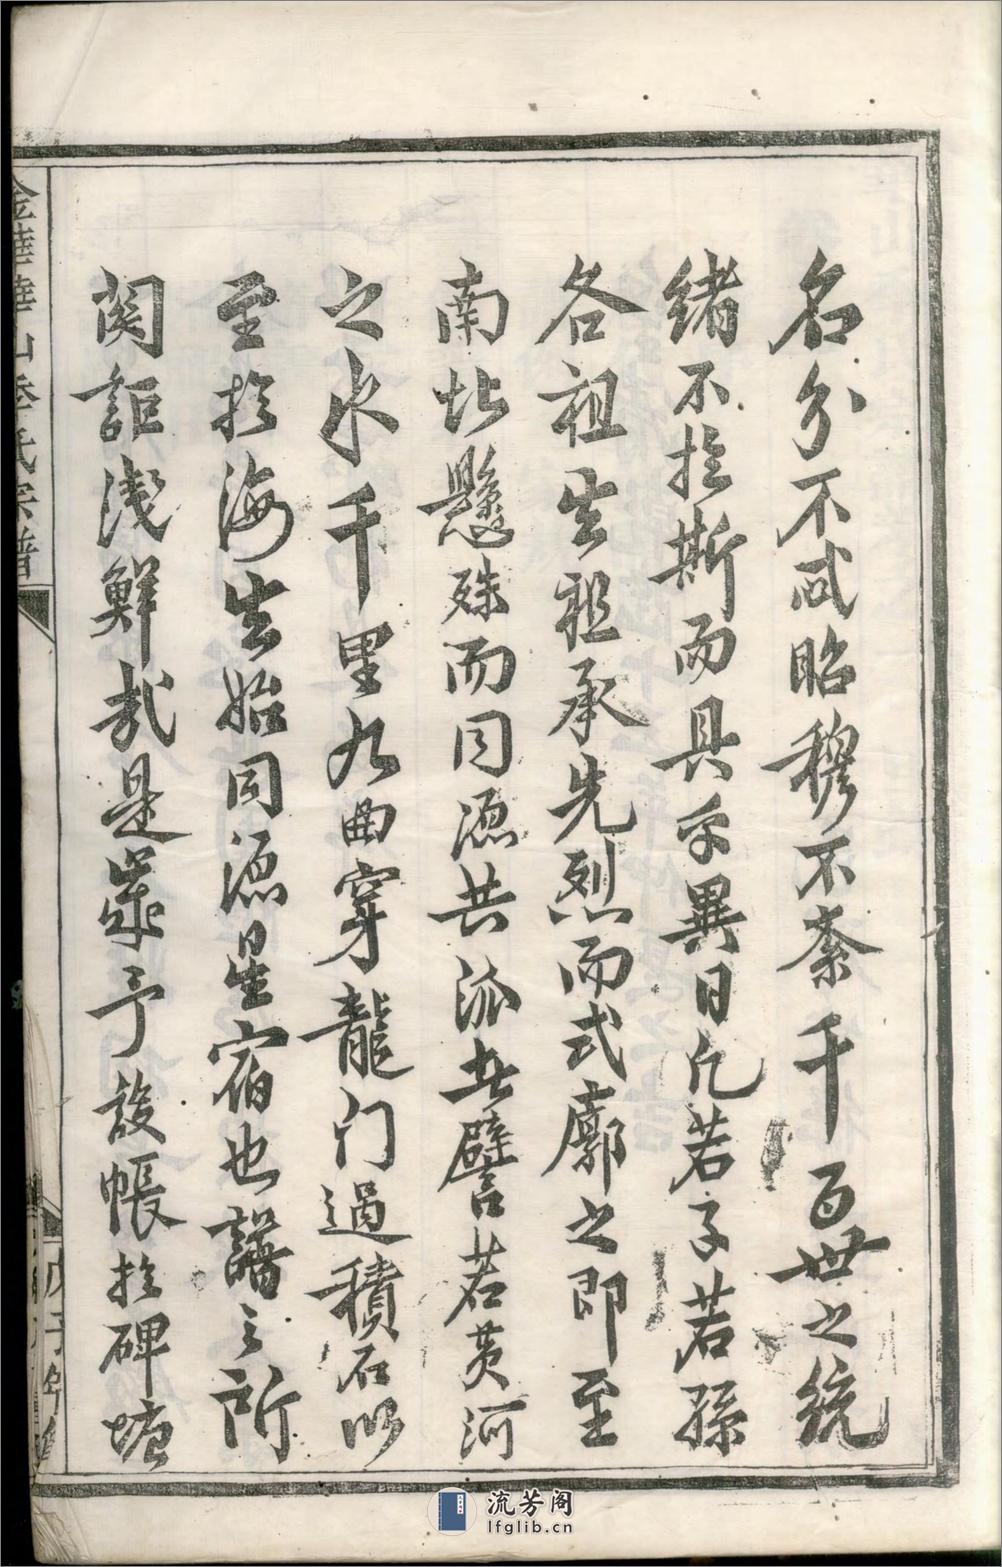 名分不忒昭穆不紊千百世之統
緒不於斯而具乎異日凡若子若孫
各祖其祖承先烈而式廓之即至
南北懸殊而同源共派者譬若黄河
之水千里九曲穿龍门過積石以
至於海其始同源星宿也譜之所
関詎淺鮮哉是嵗予設帳於碑塘
金華華山季氏宗譜
戊子年
流芳阁
lfglib.cn